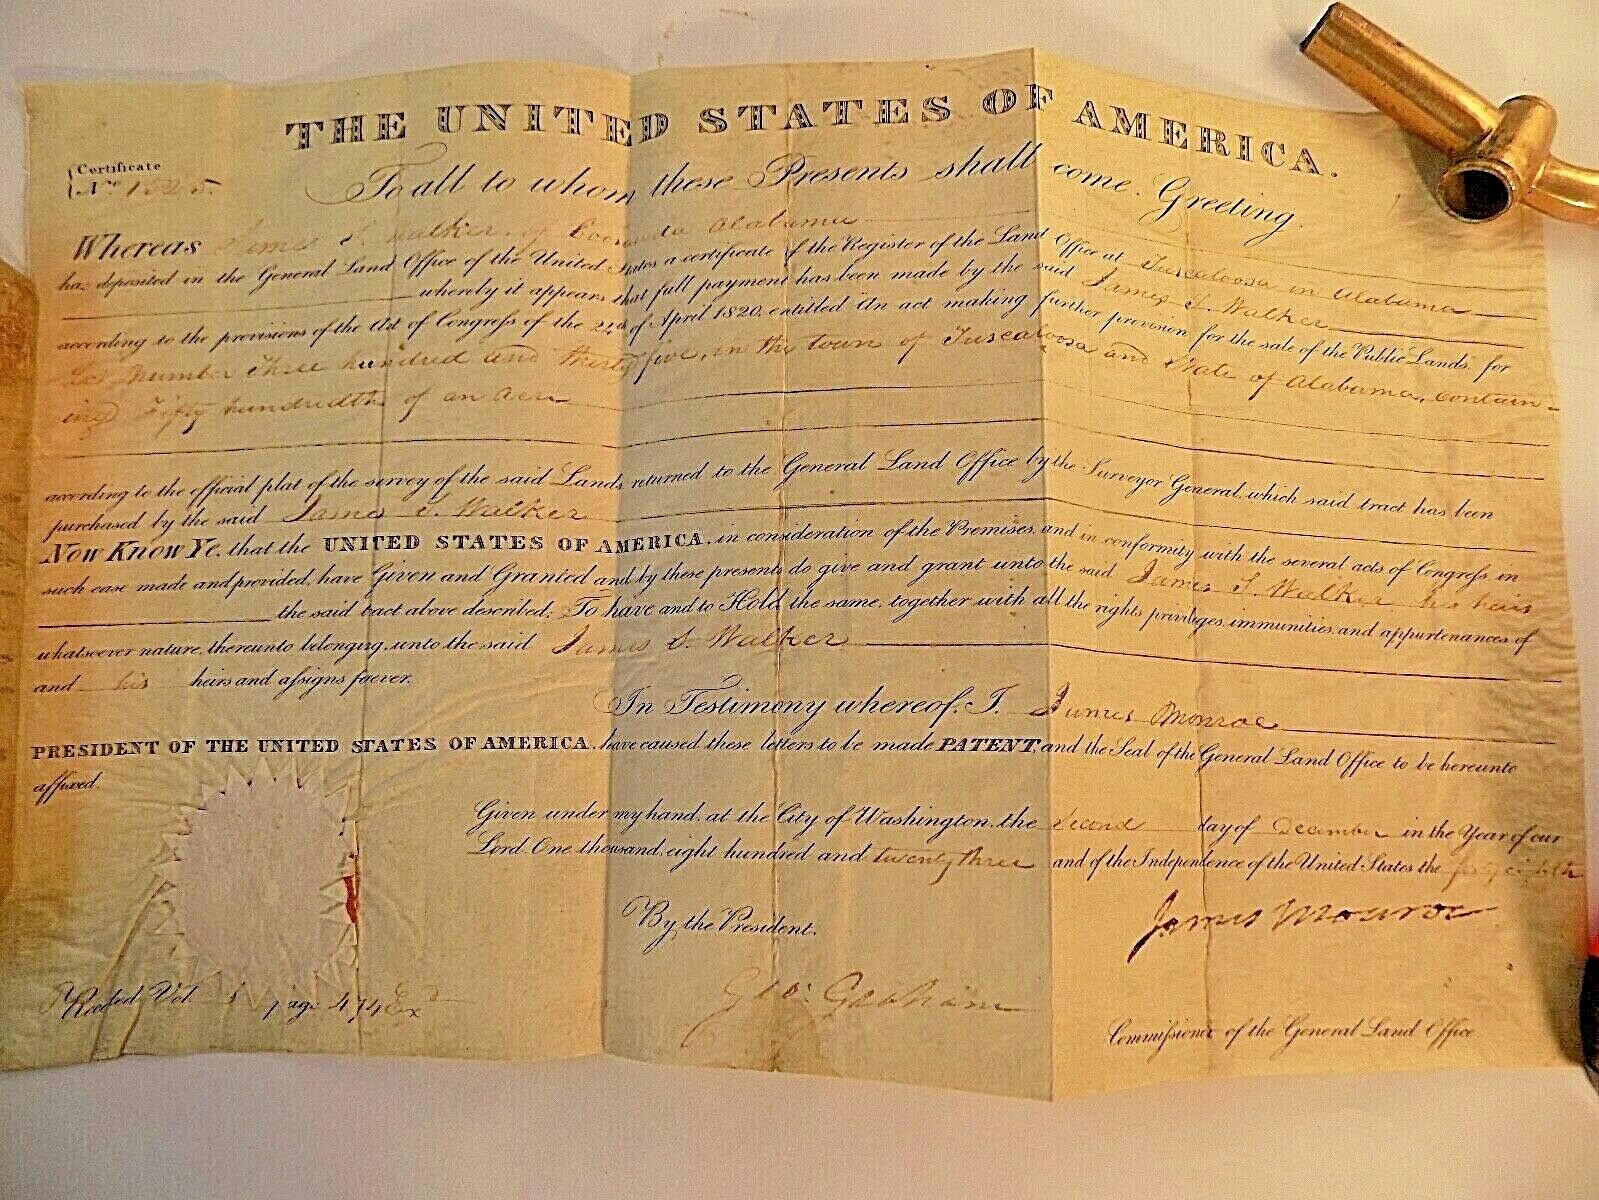 THE UNITED STATES OF AMERICA.
Certificate
No. 1525.
To all to whom these Presents shall come. Greeting.
Whereas James S. Walker, of Alabama
has deposited in the General Land Office of the United States a certificate of the Register of the Land Office at Tuscaloosa in Alabama
whereby it appears that full payment has been made by the said James S. Walker
according to the provisions of the Act of Congress of the 24th of April 1820, entitled An act making further provision for the sale of the Public Lands, for
Lot number three hundred and thirty five, in the town of Tuscaloosa and State of Alabama, contain-
ing Fifty hundredths of an acre
according to the official plat of the survey of the said Lands returned to the General Land Office by the Surveyor General, which said tract has been
purchased by the said James S. Walker
Now Know Ye, that the UNITED STATES OF AMERICA, in consideration of the Premises, and in conformity with the several acts of Congress in
such case made and provided, have Given and Granted and by these presents do give and grant unto the said James S. Walker his heirs
the said tract above described; To have and to Hold the same, together with all the rights privileges, immunities and appurtenances of
whatsoever nature, thereunto belonging, unto the said James S. Walker
and his heirs and assigns forever.
In Testimony whereof, I, James Monroe
PRESIDENT OF THE UNITED STATES OF AMERICA, have caused these letters to be made PATENT, and the Seal of the General Land Office to be hereunto
affixed.
Given under my hand, at the City of Washington, the second day of December in the Year of our
Lord, One thousand, eight hundred and twenty three and of the Independence of the United States the forty eighth
James Monroe
By the President.
Geo: Graham
Commissioner of the General Land Office
Recorded Vol. 1 page 474 Exd